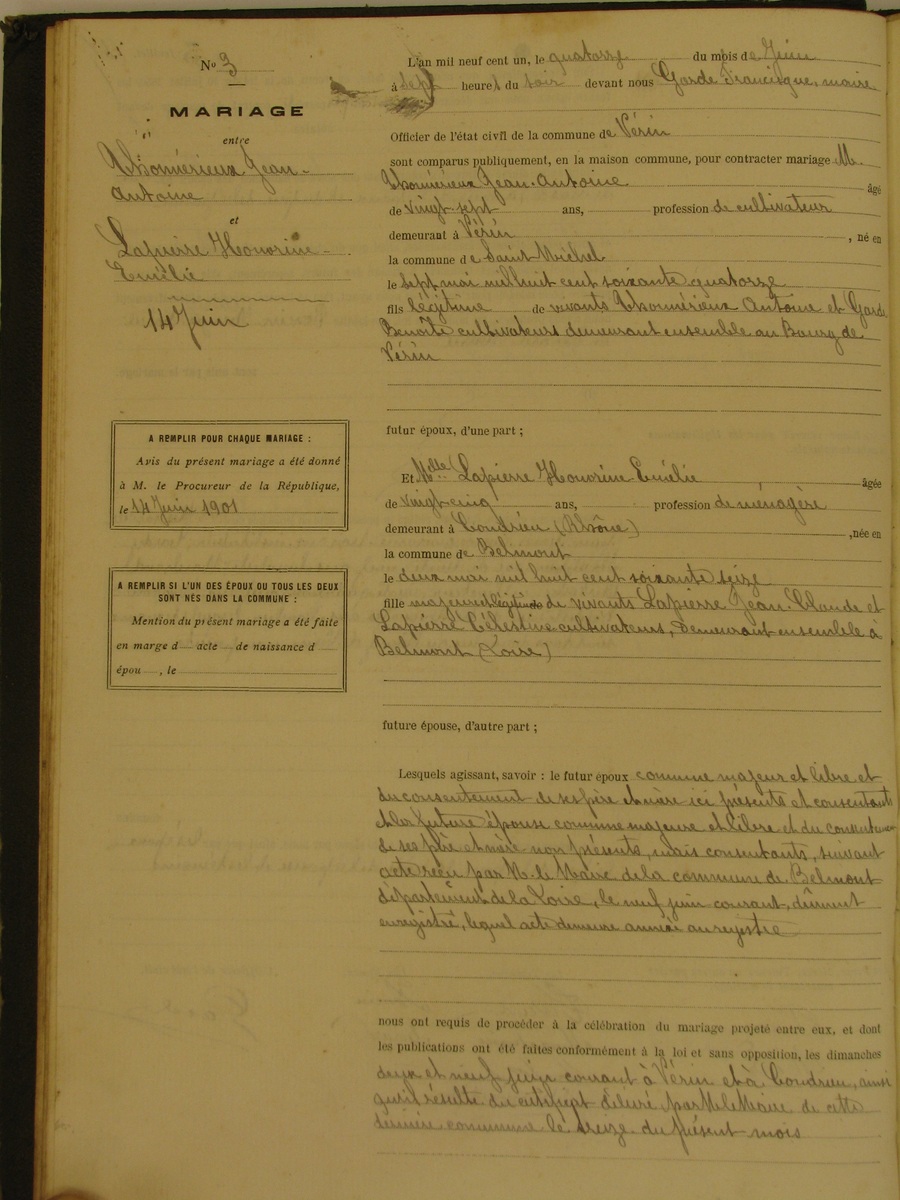 Nº 3
MARIAGE
entre
Thomérieux Jean-
Antoine
et
Lapierre Honorine-
Emélie
14 Juin
A REMPLIR POUR CHAQUE MARIAGE :
Avis du présent mariage a été donné
à M. le Procureur de la République,
le 14 Juin 1901
A REMPLIR SI L'UN DES ÉPOUX OU TOUS LES DEUX
SONT NÉS DANS LA COMMUNE :
Mention du présent mariage a été faite
en marge d acte de naissance d
épou , le
L'an mil neuf cent un, le quatorze du mois de Juin
à sept heures du soir devant nous Garde Francisque, maire
Officier de l'état civil de la commune de Vérin
sont comparus publiquement, en la maison commune, pour contracter mariage M.
Thomérieux Jean-Antoine âgé
de vingt-sept ans, profession de cultivateur
demeurant à Vérin , né en
la commune de Saint-Michel
le sept mai mil huit cent soixante quatorze
fils légitime de vivants Thomérieux Antoine et Garde
Benoîte cultivateurs demeurant ensemble au Bourg de
Vérin
futur époux, d'une part ;
Et Melle Lapierre Honorine Emélie âgée
de vingt-cinq ans, profession de ménagère
demeurant à Condrieu (Rhône) , née en
la commune de Belmont
le deux mai mil huit cent soixante seize
fille majeure et légitime de vivants Lapierre Jean-Claude et
Lapierre Célestine cultivateurs, demeurant ensemble à
Belmont (Loire)
future épouse, d'autre part ;
Lesquels agissant, savoir : le futur époux comme majeur et libre et
du consentement de ses père et mère ici présents et consentants
et la future épouse comme majeure et libre et du consentement
de ses père et mère non présents, mais consentants, suivant
acte reçu par M. le Maire de la commune de Belmont
département de la Loire, le neuf juin courant, dûment
enregistré, lequel acte demeure annexé au registre
nous ont requis de procéder à la célébration du mariage projeté entre eux, et dont
les publications ont été faites conformément à la loi et sans opposition, les dimanches
deux et neuf juin courant à Vérin et à Condrieu, ainsi
qu'il résulte du certificat délivré par M. le Maire de cette
dernière commune le treize du présent mois